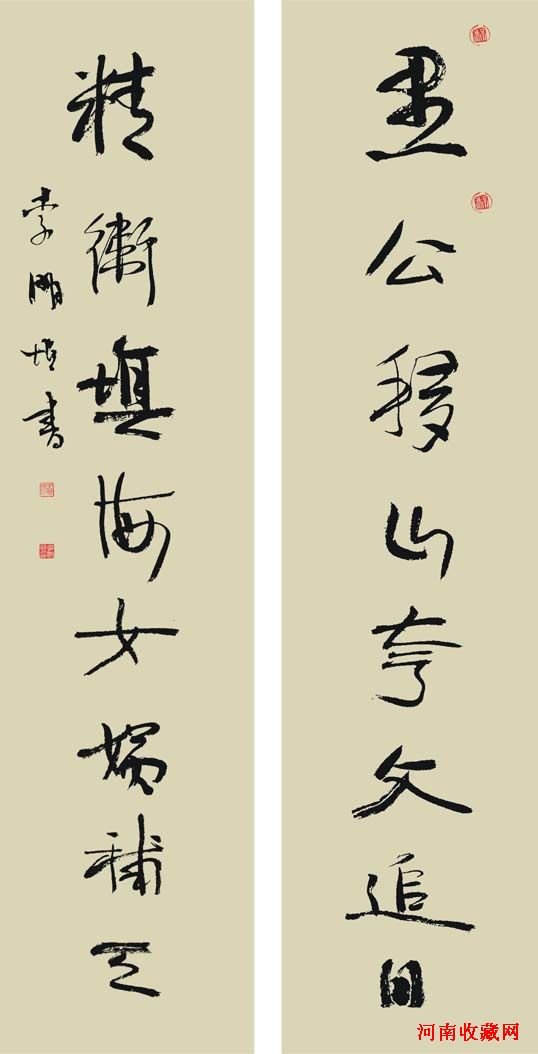 愚公移山夸父追日
精衛填海女媧補天
李朋增書
河南收藏网